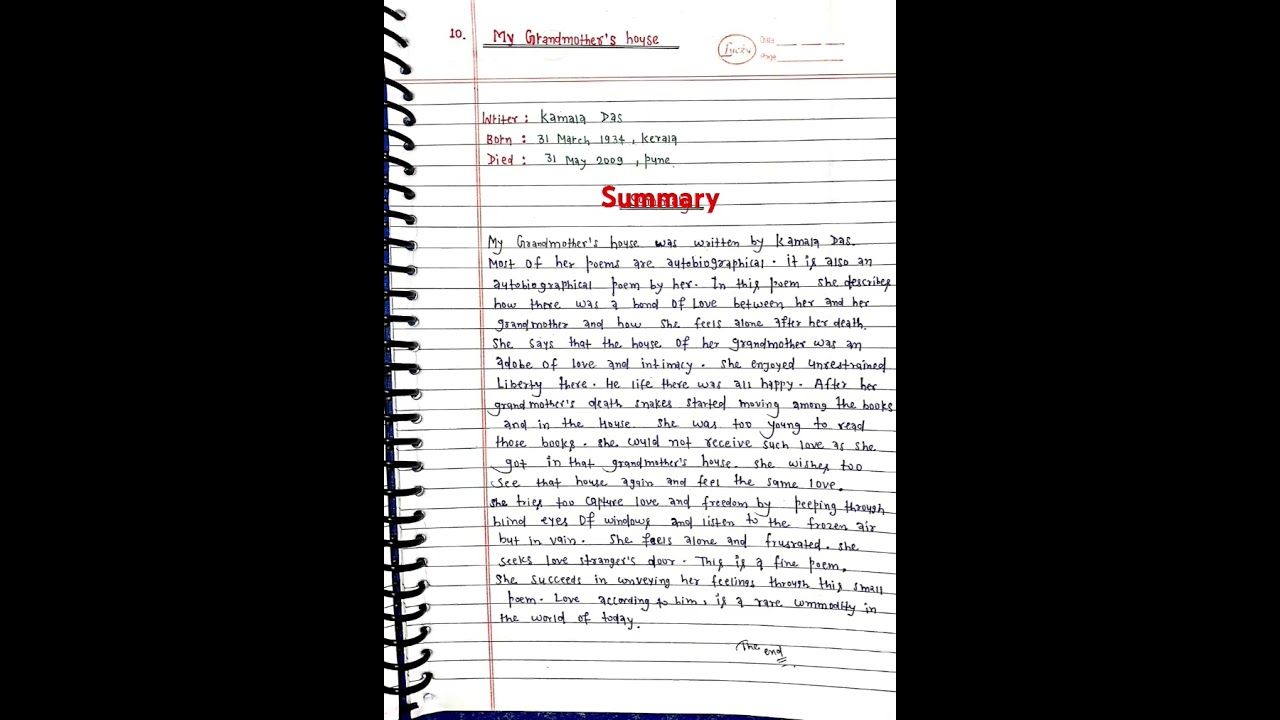 10. My Grandmother's house
Lucky Date
Page
Writer: Kamala Das
Born: 31 March 1934, Kerala
Died: 31 May 2009, Pune.
Summary
My Grandmother's house was written by Kamala Das.
Most of her poems are autobiographical. it is also an
autobiographical poem by her. In this poem she describes
how there was a bond of Love between her and her
grandmother and how she feels alone after her death.
She says that the house of her grandmother was an
adobe of love and intimacy. She enjoyed unrestrained
Liberty there. He life there was all happy. After her
grandmother's death snakes started moving among the books
and in the House. She was too young to read
those books. she could not receive such love as she
got in that grandmother's house. she wishes too
see that house again and feel the same love.
she tries too capture love and freedom by peeping through
blind eyes of windows and listen to the frozen air
but in vain. She feels alone and frusrated. she
seeks love stranger's door. This is a fine poem.
She succeeds in conveying her feelings through this small
poem. Love according to him, is a rare commodity in
the world of today.
The end